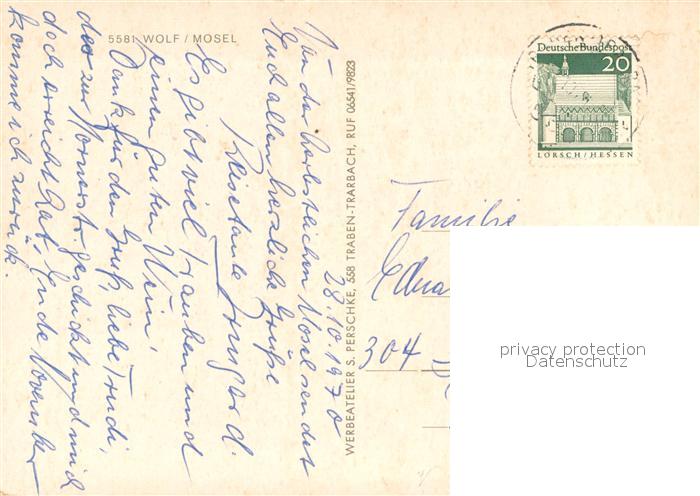 5581 WOLF / MOSEL
28.10.1970
Von der herbstlichen Mosel sendet
Euch allen herzliche Grüße
Reisetante Irmgard.
Es gibt viel Trauben und
einen guten Wein!
Dank für den Gruß, liebe Trudi,
der zur Nonnerstr. geschickt und mich
doch erreicht hat. Ende November
komme ich zurück.
WERBEATELIER S. PERSCHKE, 558 TRABEN-TRARBACH, RUF 06541/9823
Deutsche Bundespost
20
LORSCH / HESSEN
Familie
304
privacy protection
Datenschutz